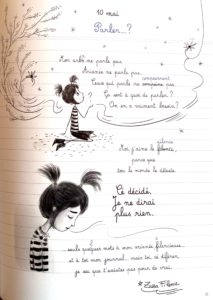 10 mai
Parler...?
Mon arbre ne parle pas.
Ariane ne parle pas.
Ceux qui parle ne comprenne pas. comprennent
Ça sert à quoi de parler?
On en a vraiment besoin?
Moi j'aime le silence
parce que
tout le monde le déteste.
C'é décidé,
Je ne dirai
plus rien.
seule quelques mots à mon animée silencieuse
et à toi mon journal... mais toi c différent,
je sais que t'existes pas pour de vrai.